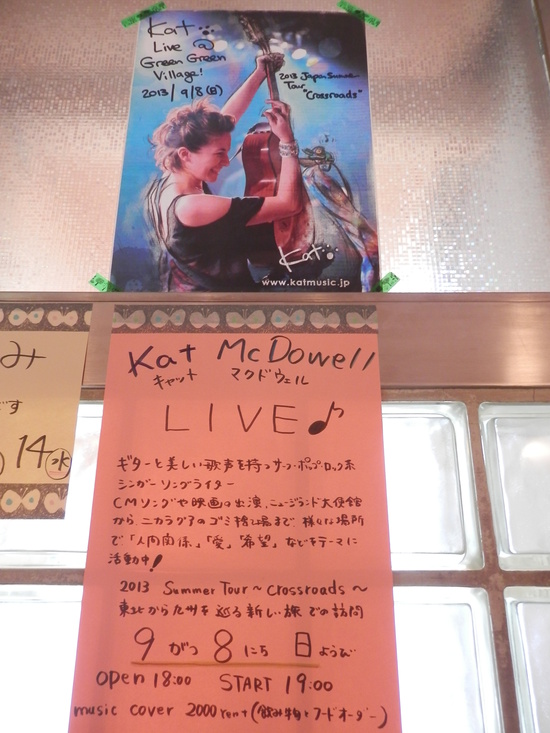 Kat
Live @
Green Green
Village!
2013/9/8(日)
2013 Japan Summer
Tour
"Crossroads"
Kat
www.katmusic.jp
Kat McDowell
キャット マクドウェル
LIVE♪
ギターと美しい歌声を持つサーフ・ポップ・ロック系
シンガーソングライター
CMソングや映画の出演、ニュージランド大使館
から、ニカラグアのゴミ捨て場まで、様々な場所
で「人間関係」「愛」「希望」などをテーマに
活動中!
2013 Summer Tour ~ Crossroads ~
東北から九州を巡る新しい旅での訪問
9がつ 8にち 日ようび
open 18:00 START 19:00
music cover 2000yen+(飲み物とフードオーダー)
み
です
14水